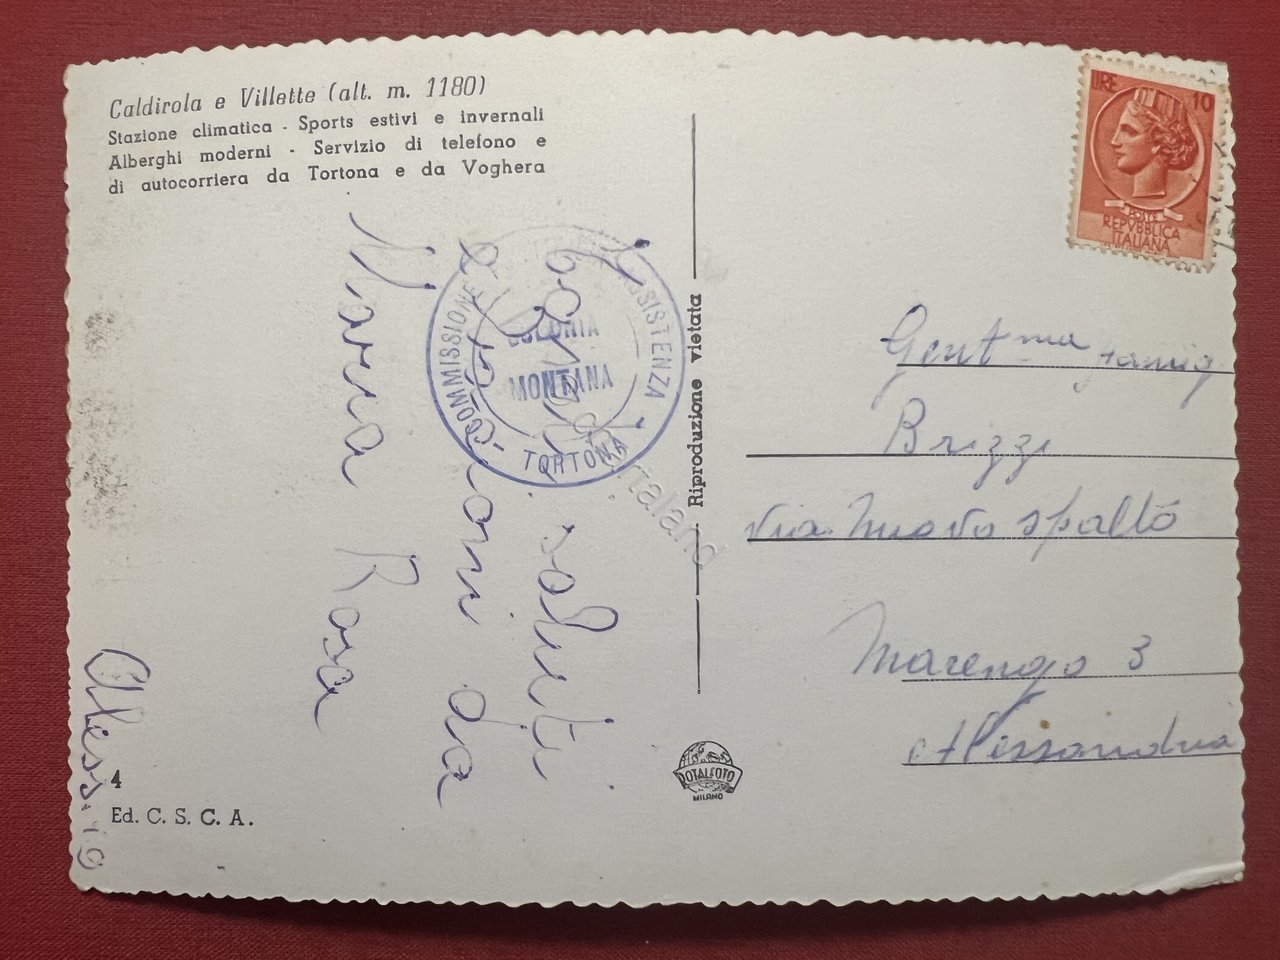 Caldirola e Villette (alt. m. 1180)
Stazione climatica - Sports estivi e invernali
Alberghi moderni - Servizio di telefono e
di autocorriera da Tortona e da Voghera
LIRE 10
POSTE
REPVBBLICA
ITALIANA
COMMISSIONE ASSISTENZA
COLONIA
MONTANA
- TORTONA -
saluti
da
Maria Rosa
Riproduzione vietata
Gent ma Famig
Brizzi
via nuovo spalto
Marengo 3
Alessandria
ROTALFOTO
MILANO
4
Ed. C. S. C. A.